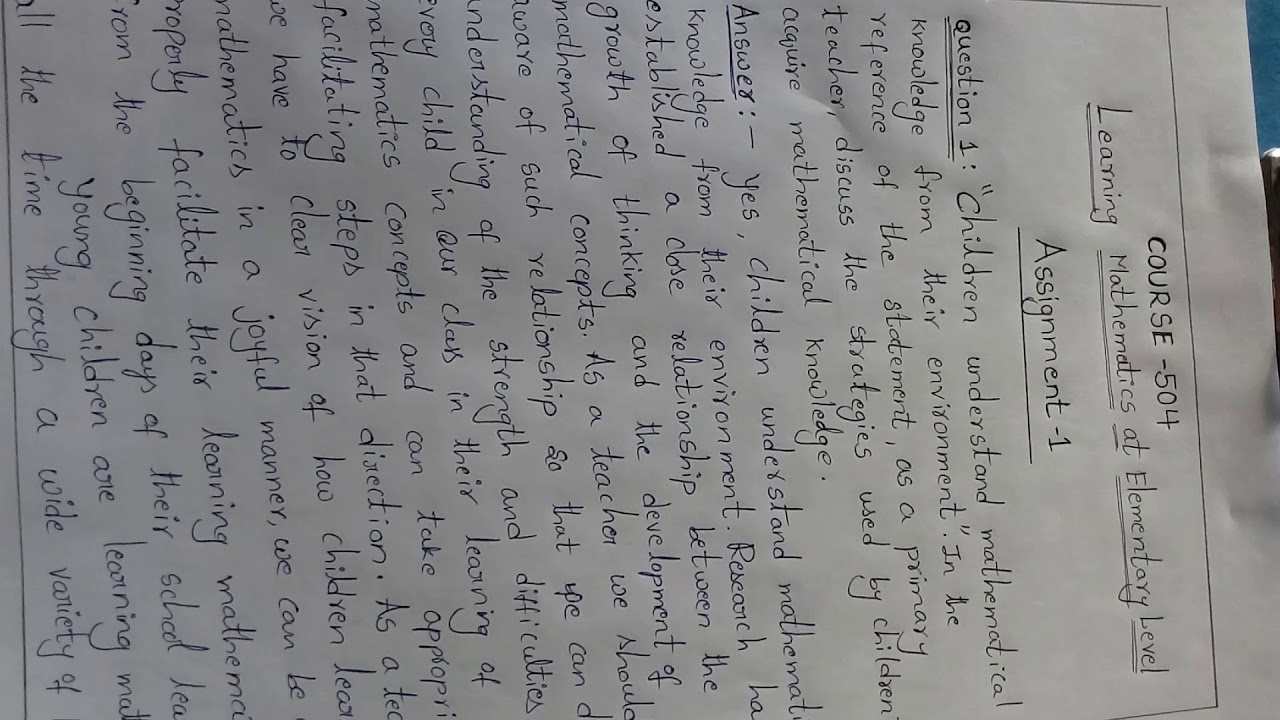 COURSE -504
Learning Mathematics at Elementary Level
Assignment -1
question 1: "Children understand mathematical
knowledge from their environment". In the
reference of the statement, as a primary
teacher, discuss the strategies used by children
acquire mathematical knowledge.
Answer:- yes, children understand mathemati
knowledge from their environment. Research ha
established a close relationship between the
growth of thinking and the development of
mathematical concepts. As a teacher we should
aware of such relationship so that we can d
understanding of the strength and difficulties
every child in our class in their learning of
mathematics concepts and can take appropri
facilitating steps in that direction. As a tea
we have to clear vision of how children lear
mathematics in a joyful manner, we can be
roperly facilitate their learning mathemat
from the beginning days of their school lea
Young children are learning mat
all the time through a wide variety of